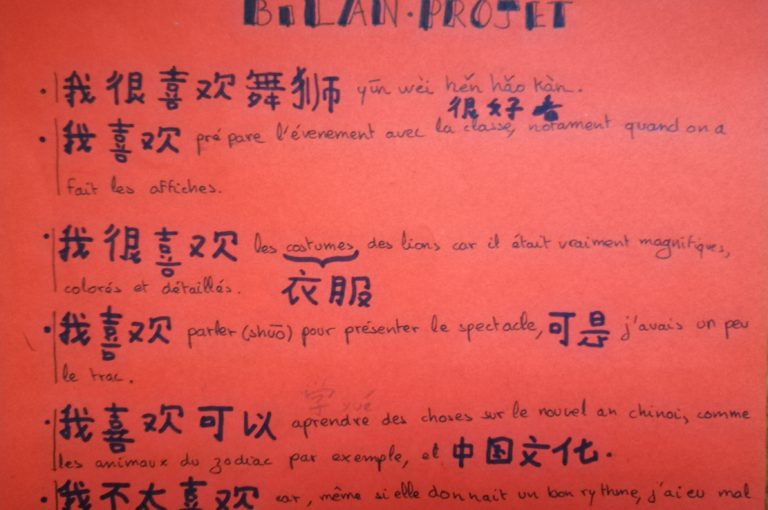 BILAN·PROJET
· 我很喜欢舞狮 yīn wèi hěn hǎo kàn.
很好看
· 我喜欢 prépare l'évenement avec la classe, notament quand on a
fait les affiches.
· 我很喜欢 les costumes, des lions car il était vraiment magnifiques,
colorés et détaillés. 衣服
· 我喜欢 parler (shuō) pour présenter le spectacle, 可是 j'avais un peu
le trac.
学 xué
· 我喜欢可以 aprendre des choses sur le nouvel an chinois, comme
les animaux du zodiac par exemple, et 中国文化.
· 我不太喜欢 car, même si elle donnait un bon rythme, j'ai eu mal